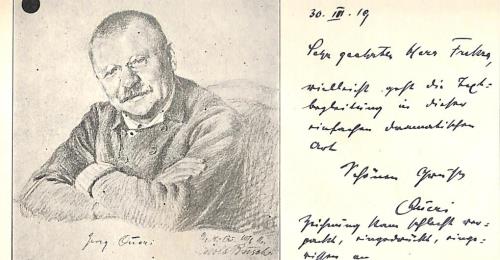 Georg Queri
30. III. 19
Sehr geehrter Herr
vielleicht geht die Text-
begleitung in dieser
einfachen dramatischen
Art
Schönen Gruß
Queri
Zeichnung kam schlecht ver-
packt, eingedrückt, einge-
rissen an